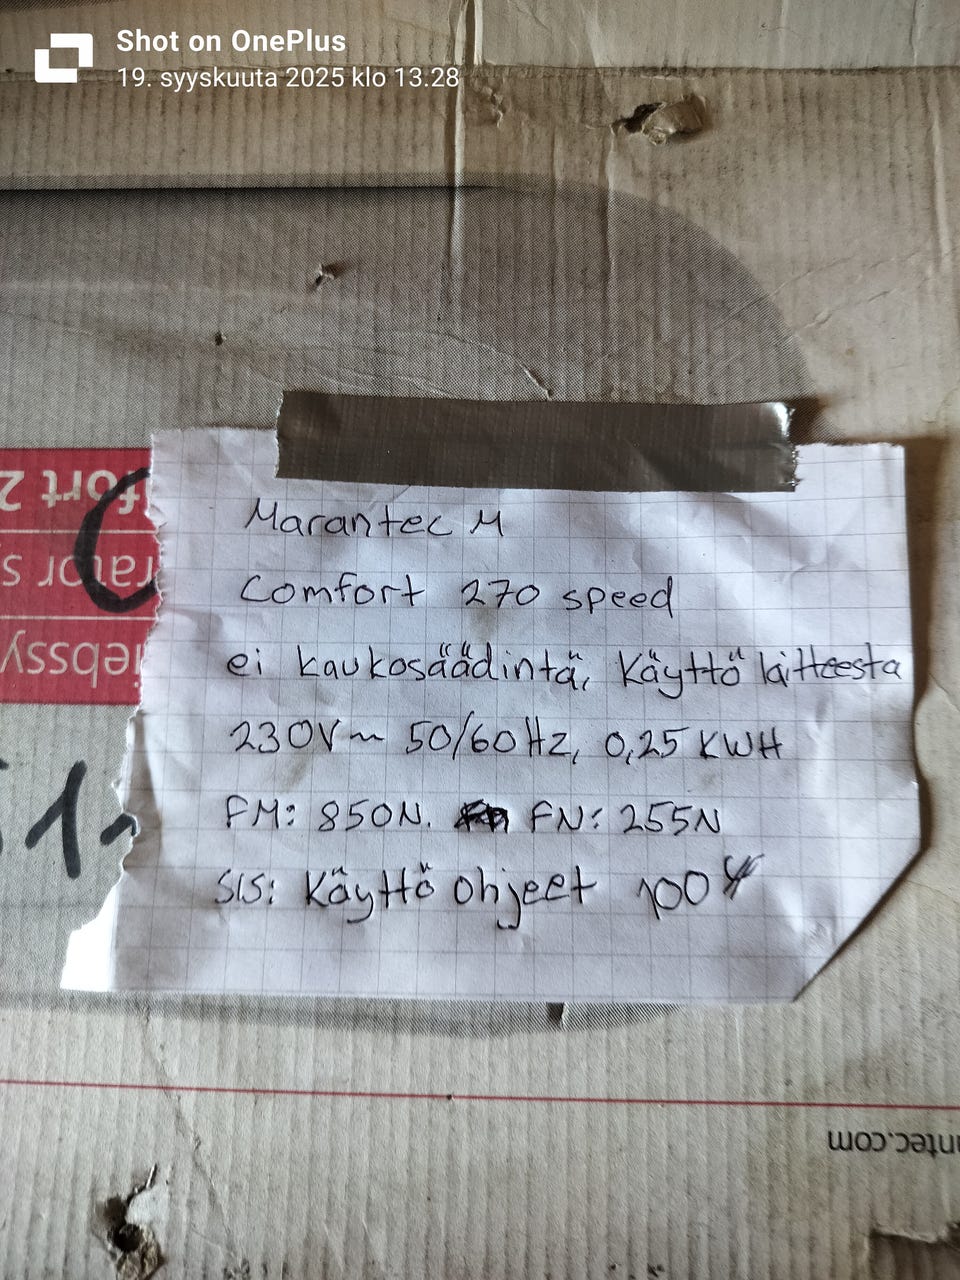 Shot on OnePlus
19. syyskuuta 2025 klo 13.28
fort 2
rator s
iebssy
Marantec M
Comfort 270 speed
ei kaukosäädintä, Käyttö laitteesta
230V~ 50/60Hz, 0,25 KWH
FM: 850N. FN: 255N
SIS: Käyttö ohjeet 100
ntec.com